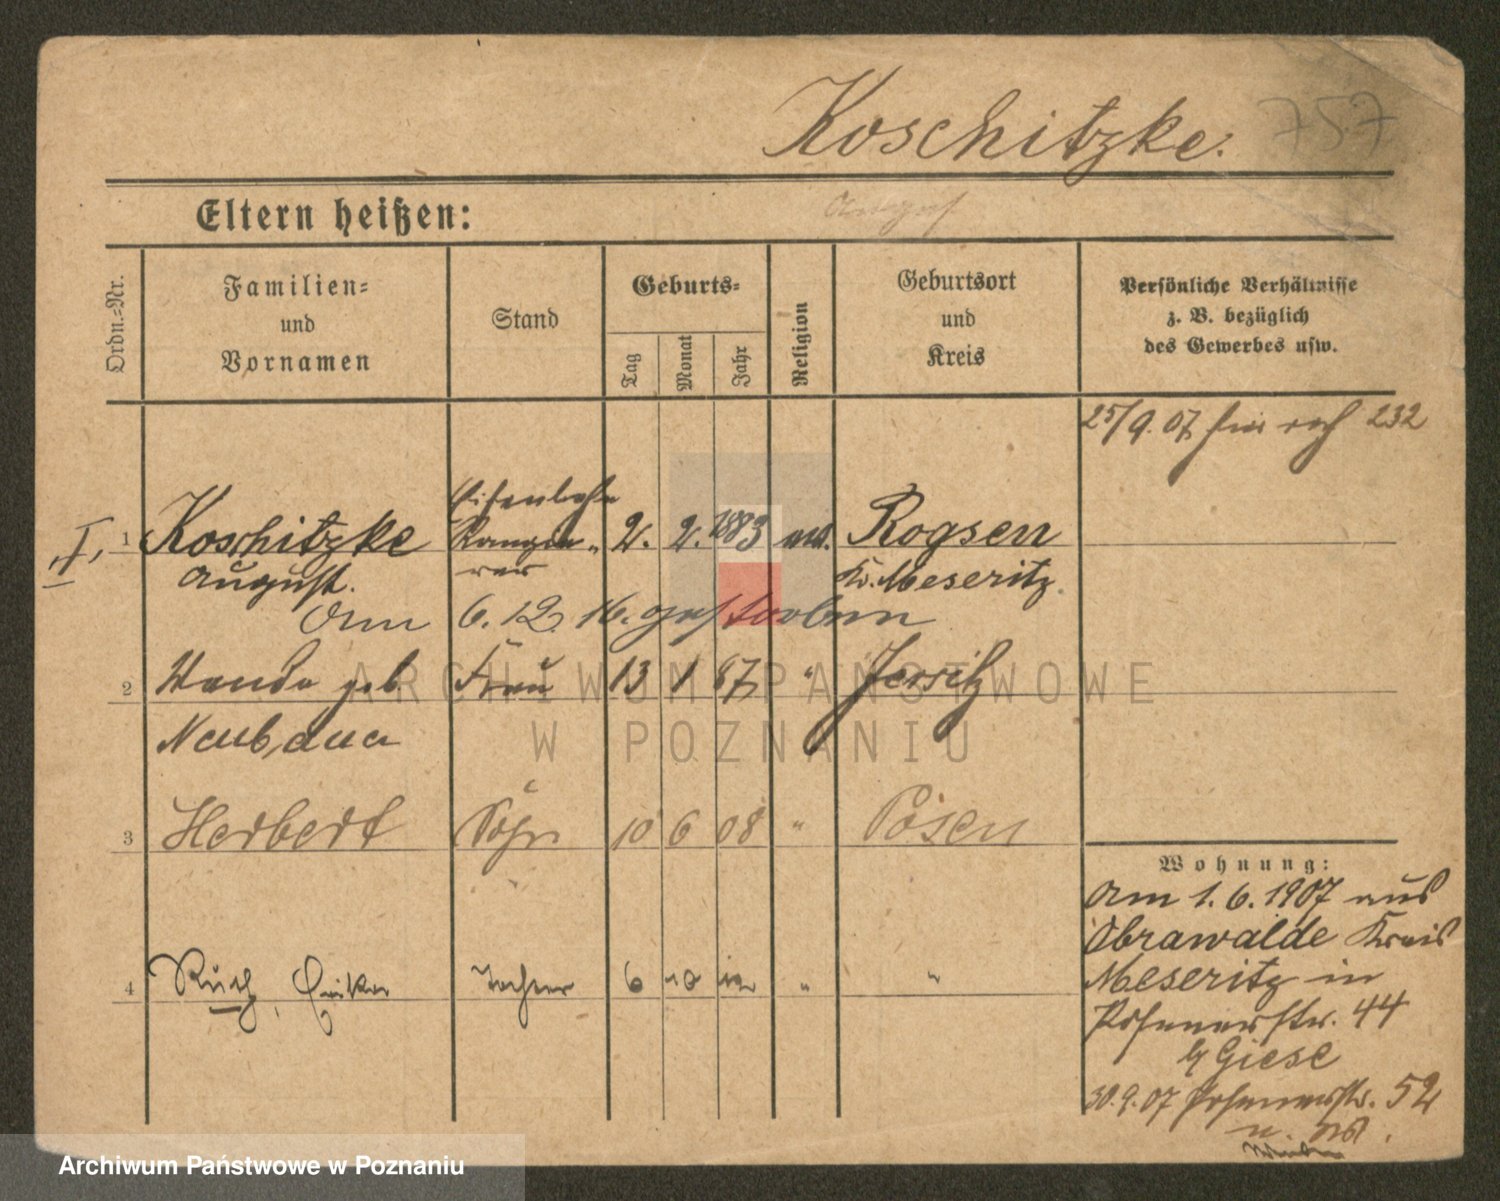 Koschitzke. 757
Eltern heißen:
August
Ordn.-Nr.
Familien-
und
Vornamen
Stand
Geburts-
Tag
Monat
Jahr
Religion
Geburtsort
und
Kreis
Persönliche Verhältnisse
z. B. bezüglich
des Gewerbes usw.
25/9. 07 232
I,
Eisenbahn
1 Koschitzke Rangie- 2. 2. 1883 Rogsen
August. rer Kr. Meseritz.
Am 6. 12. 16. gestorben
2 Wanda geb. Frau 13 1 87 " Jersitz
Neubauer
3 Herbert Sohn 10 6 08 " Posen
4 Ruth, Erika Tochter 6 10 12 " "
Wohnung:
Am 1. 6. 1907 aus
Obrawalde Kreis
Meseritz in
Posenerstr. 44
b/ Giese
30.9.07 Posenerstr. 52
ARCHIWUM PAŃSTWOWE
W POZNANIU
Archiwum Państwowe w Poznaniu